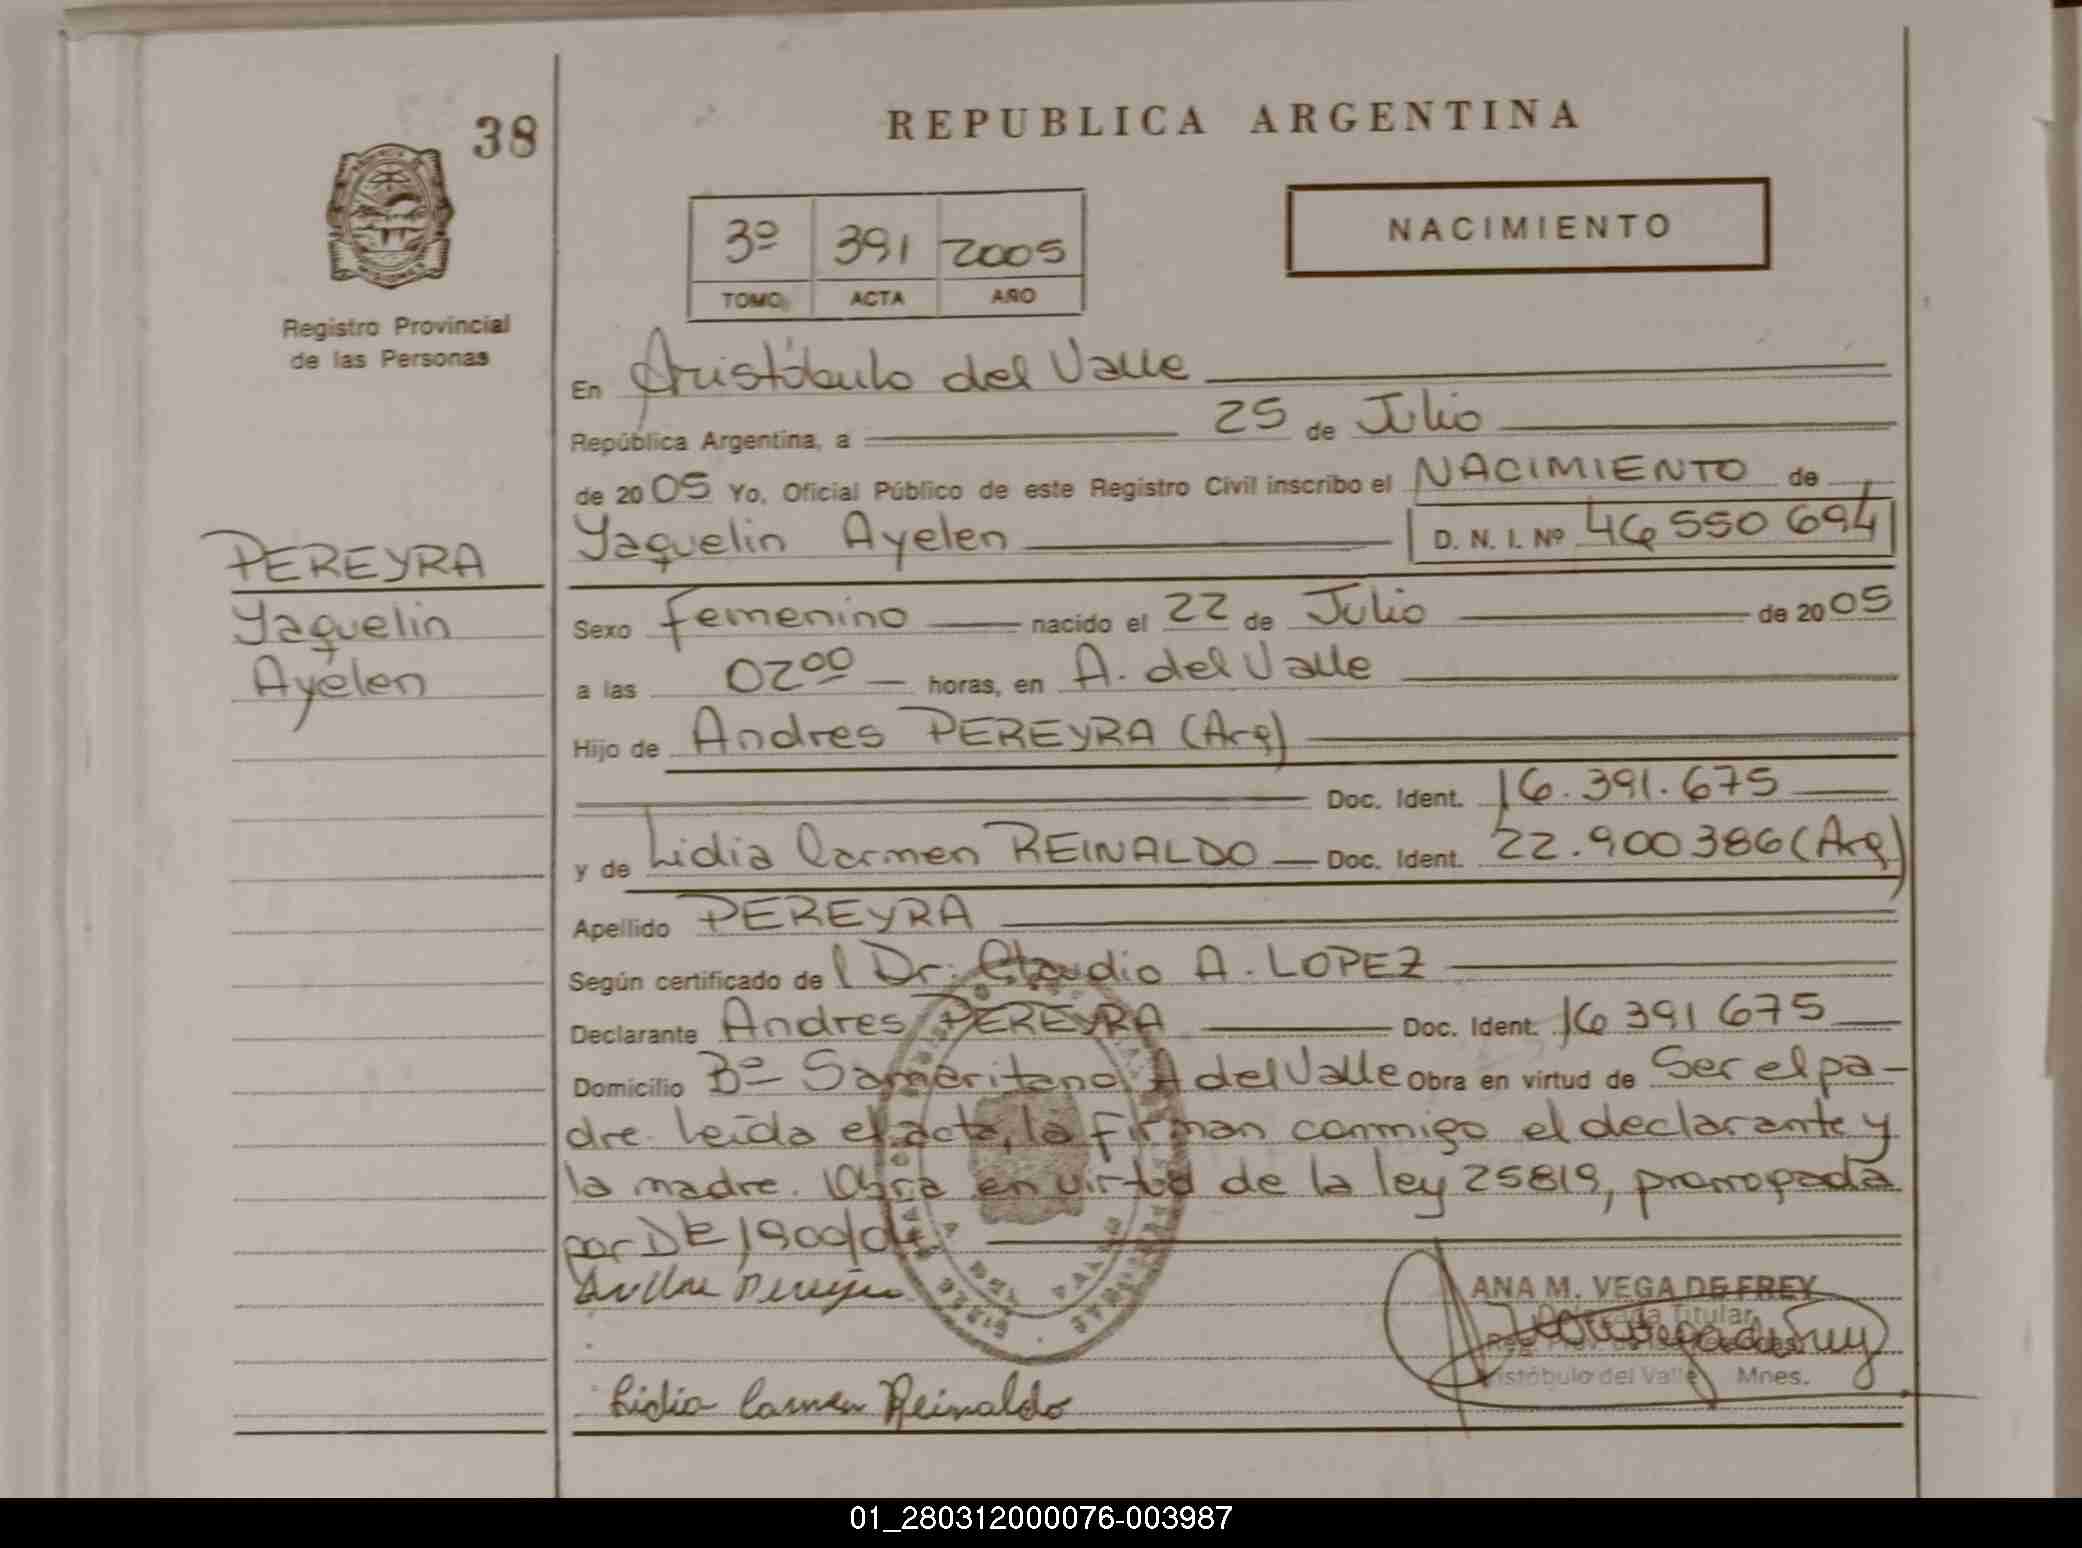 38
REPUBLICA ARGENTINA
NACIMIENTO
3º 391 2005
TOMO ACTA AÑO
Registro Provincial
de las Personas
En Aristóbulo del Valle
República Argentina, a 25 de Julio
de 2005 Yo, Oficial Público de este Registro Civil inscribo el NACIMIENTO de
PEREYRA
Yaquelin
Ayelen
Yaquelin Ayelen D. N. I. Nº 46 550 694
Sexo Femenino nacido el 22 de Julio de 2005
a las 02 00 horas, en A. del Valle
Hijo de Andres PEREYRA (Arg)
Doc. Ident. 16.391.675
y de Lidia Carmen REINALDO Doc. Ident. 22.900386 (Arg)
Apellido PEREYRA
Según certificado del Dr. Claudio A. LOPEZ
Declarante Andres PEREYRA Doc. Ident. 16 391 675
Domicilio Bº Samaritano A del Valle Obra en virtud de Ser el pa-
dre. Leída el acta, la firman conmigo el declarante y
la madre. Obra en virtud de la ley 25819, prorrogada
por DE 1900/04
ANA M. VEGA DE FREY
Delegada Titular
Aristóbulo del Valle Mnes.
Lidia Carmen Reinaldo
01_280312000076-003987